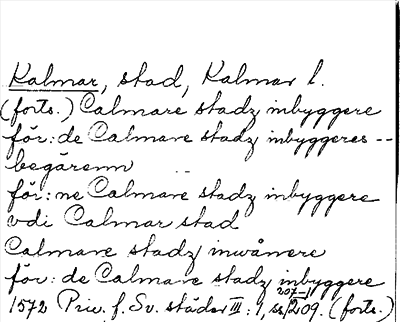 Kalmar, stad, Kalmar l.
(forts.) Calmare stadz inbyggere
för: de Calmare stadz inbyggeres --
begärenn
för: ne Calmare stadz inbyggere
vdi Calmar stad
Calmare stadz inwånere
för: de Calmare stadz inbyggere
207-11
1572 Priv. f. Sv. städer III: 1, ss 209. (forts.)